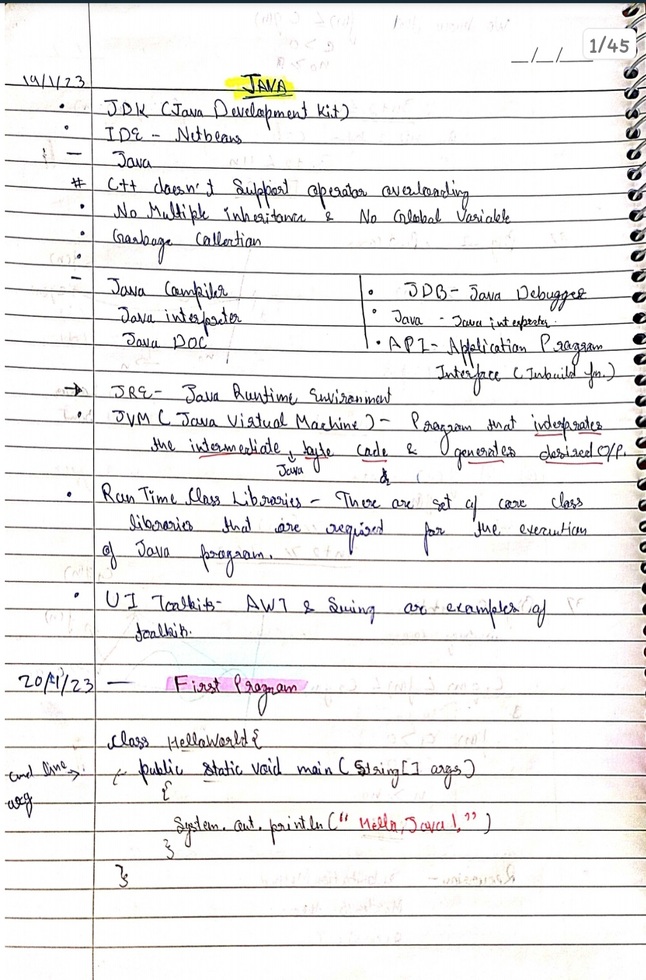 1/45
_/_/_
19/1/23
JAVA
• JDK (Java Development Kit)
• IDE - Netbeans
- Java
# C++ doesn't Support operator overloading
• No Multiple Inheritance & No Global Variable
• Garbage Collection
•
- Java Compiler
Java interpreter
Java DOC
• JDB - Java Debugger
• Java - Java interpreter
• API - Application Program
Interface (Inbuild fn.)
→ JRE - Java Runtime Environment
• JVM (Java Virtual Machine) - Program that interprates
the intermediate, byte code & generates desired O/P.
Java
• Run Time Class Libraries - There are set of core class
libraries that are required for the execution
of Java program.
• UI Toolkits - AWT & Swing are examples of
toolkits.
20/1/23 - First Program
class HelloWorld {
cmd line → public static void main (String[] args)
arg
{
System.out.println (" Hello, Java !, ")
}
}